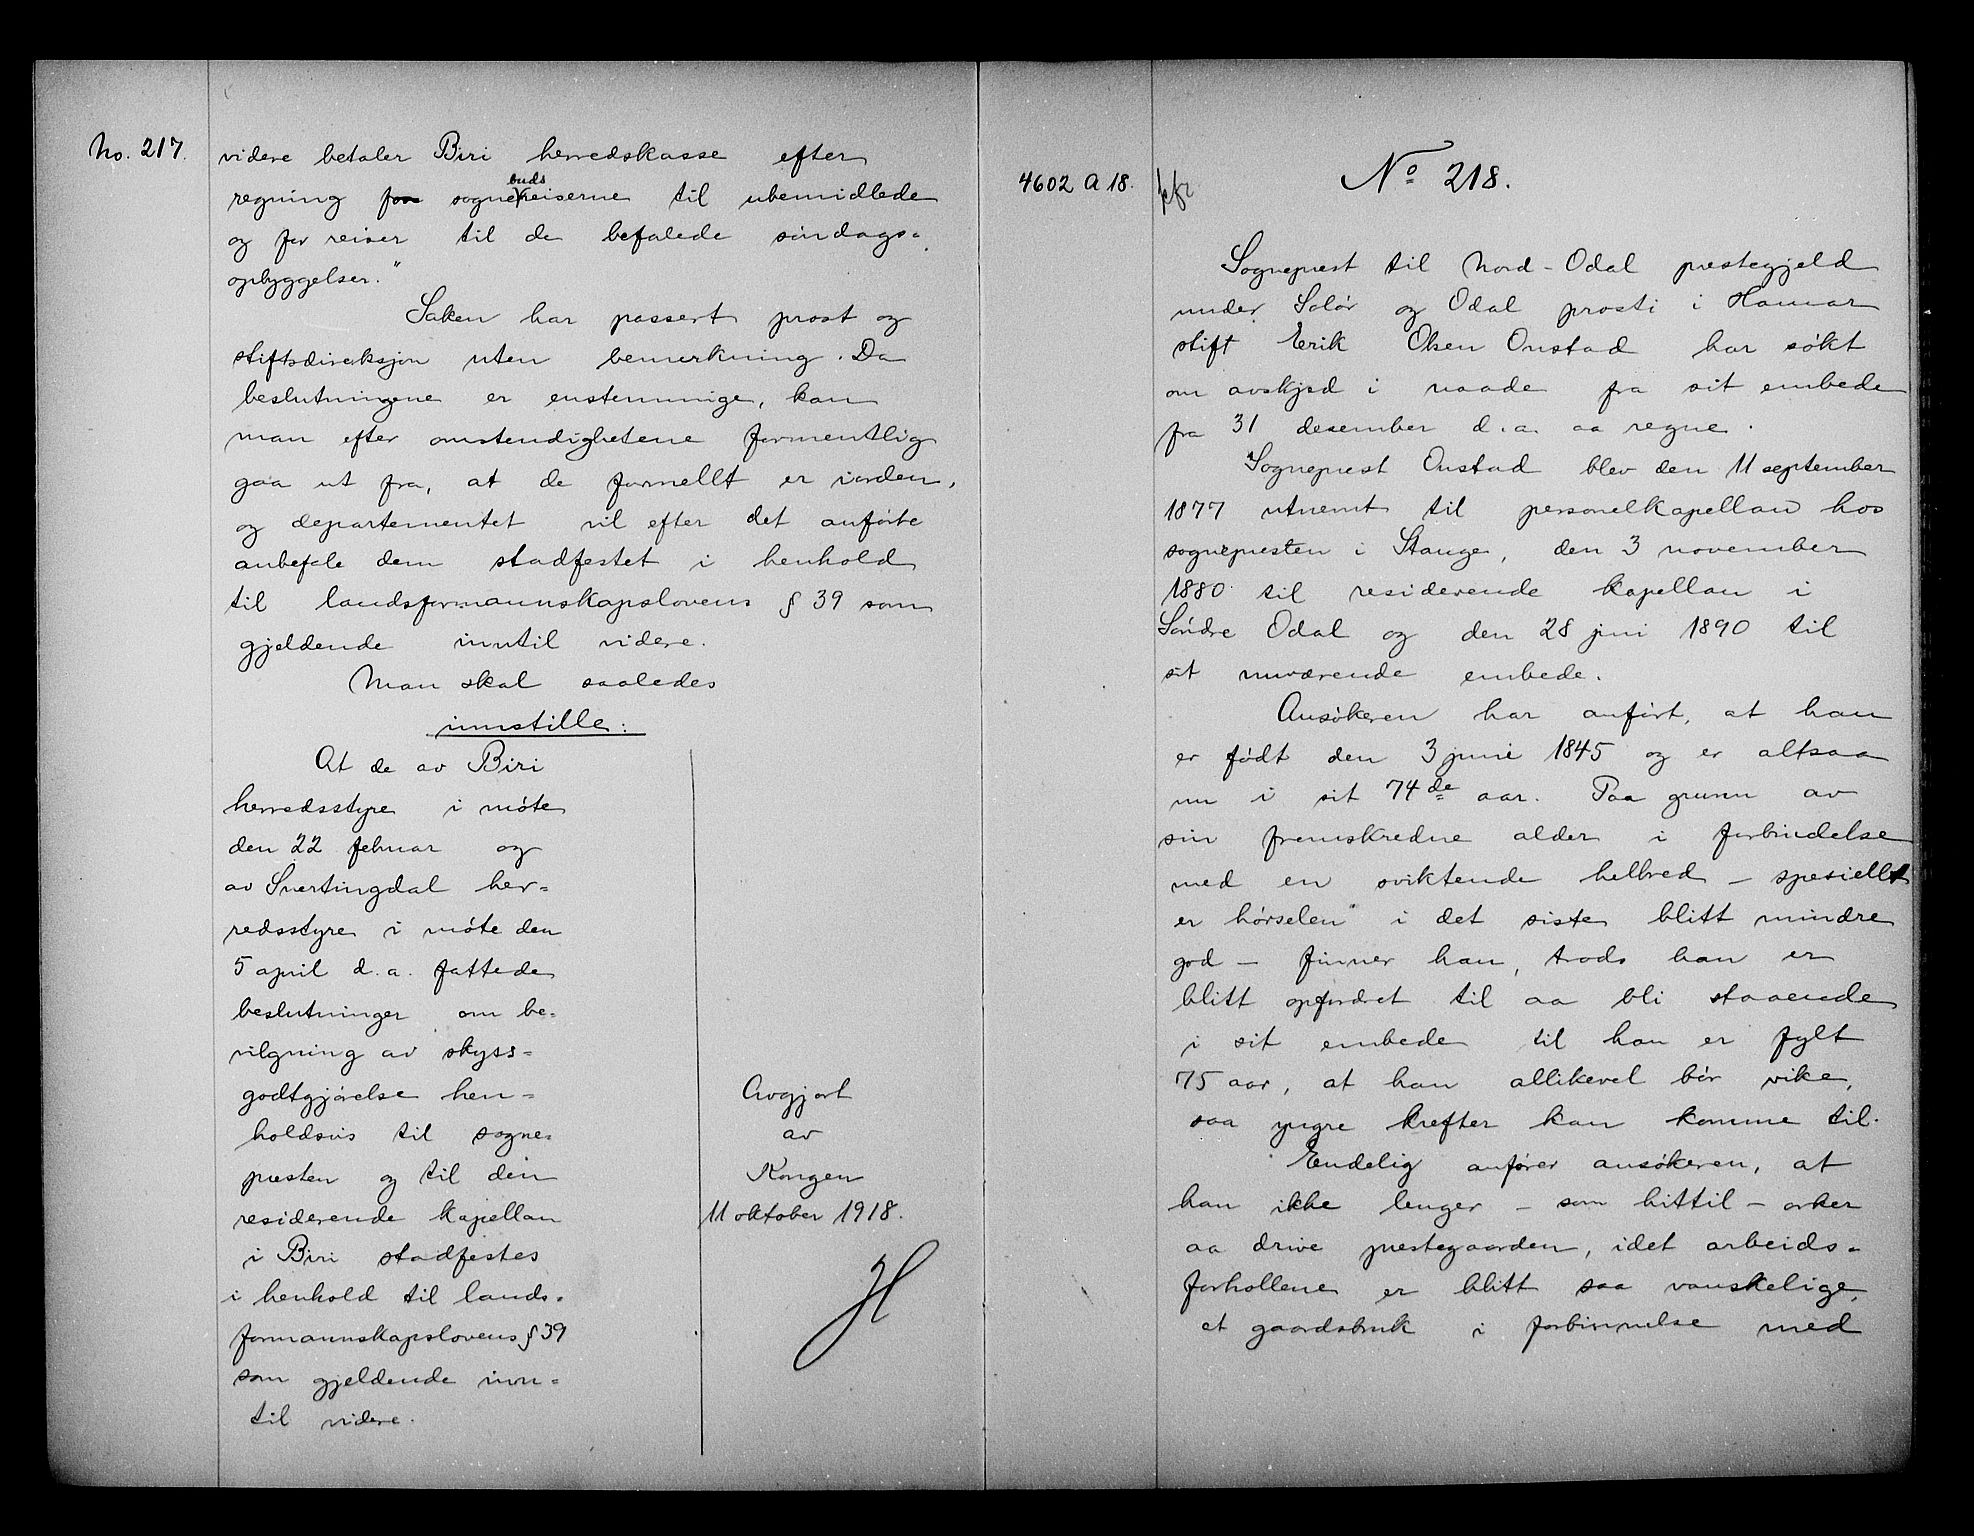 No. 217.
videre betaler Biri herredskasse efter
regning for sognebudsreiserne til ubemidlede
og for reiser til de befalede søndags-
opbyggelser."
Saken har passert prost og
stiftsdireksjon uten bemerkning. Da
beslutningene er enstemmige, kan
man efter omstendighetene formentlig
gaa ut fra, at de formellt er iorden,
og departementet vil efter det anførte
anbefale dem stadfestet i henhold
til landsformannskapslovens § 39 som
gjeldende inntil videre.
Man skal saaledes
innstille:
At de av Biri
herredsstyre i møte
den 22 februar og
av Snertingdal her-
redsstyre i møte den
5 april d.a. fattede
beslutninger om be-
vilgning av skyss-
godtgjørelse hen-
holdsvis til sogne-
presten og til den
residerende kapellan
i Biri stadfestes
i henhold til lands-
formannskapslovens § 39
som gjeldende inn-
til videre.
Avgjort
av
Kongen
11 oktober 1918.
H
4602 A 18.
No 218.
Sogneprest til Nord-Odal prestegjeld
under Solør og Odal prosti i Hamar
stift Erik Olsen Onstad har søkt
om avskjed i naade fra sit embede
fra 31 desember d.a. aa regne.
Sogneprest Onstad blev den 11 september
1877 utnemt til personelkapellan hos
sognepresten i Stange, den 3 november
1880 til residerende kapellan i
Søndre Odal og den 28 juni 1890 til
sit nuværende embede.
Ansøkeren har anført, at han
er født den 3 juni 1845 og er altsaa
nu i sit 74de aar. Paa grunn av
sin fremskredne alder i forbindelse
med en sviktende helbred - spesiellt
er hørselen" i det siste blitt mindre
god - finner han, trods han er
blitt opfordret til aa bli staaende
i sit embede til han er fylt
75 aar, at han allikevel bør vike,
saa yngre krefter kan komme til.
Endelig anfører ansøkeren, at
han ikke lenger - som hittil - orker
aa drive prestegaarden, idet arbeids-
forhollene er blitt saa vanskelige,
et gaardsbruk i forbinnelse med